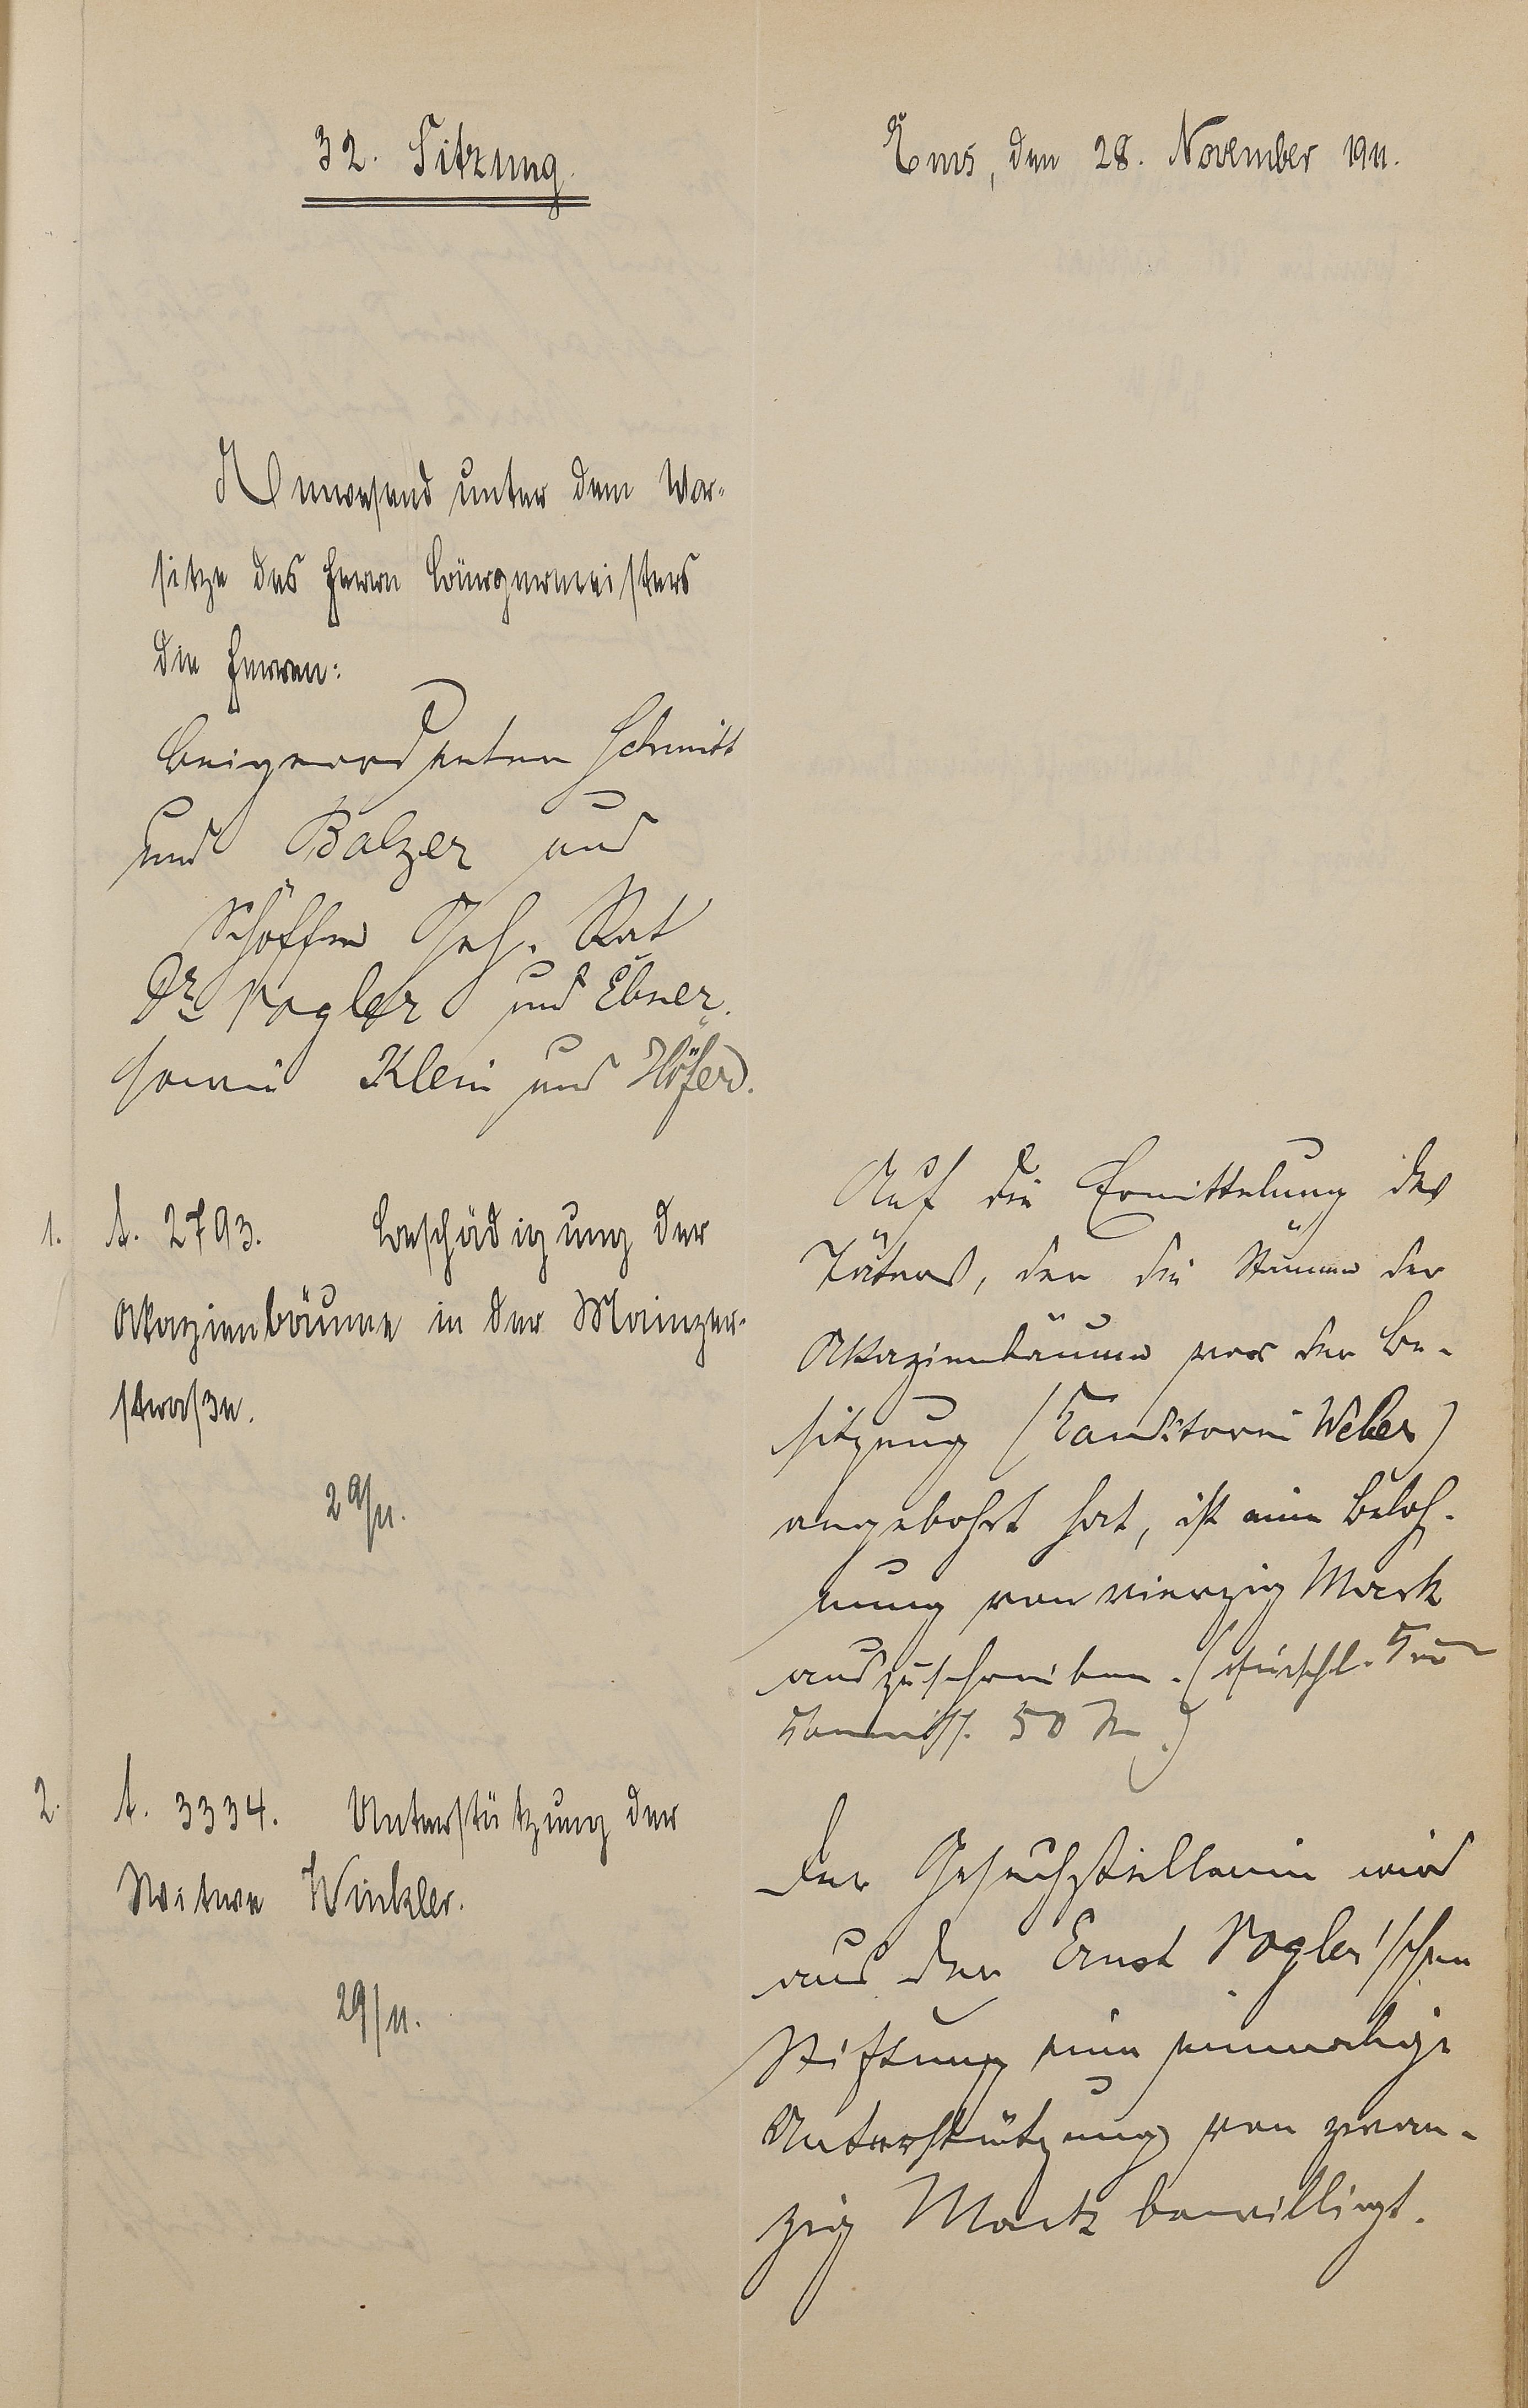 32. Sitzung.
Ems, den 28. November 1911.
Anwesend unter dem Vor-
sitze des Herrn Bürgermeisters
die Herren:
Beigeordneten Schmitt
und Balzer und
Schöffen Geh. Rat
Dr. Vogler und Ebner.
sowie Klein und Höfer.
1. A. 2793. Beschädigung der
Akazienbäume in der Mainzer-
straße.
29/11.
Auf die Ermittelung des
Täters, der die Stämme der
Akazienbäume vor der Be-
sitzung (Konditorei Weber)
angebohrt hat, ist eine Beloh-
nung von vierzig Mark
auszuschreiben. (
50 M.)
2. A. 3334. Unterstützung der
Witwe Winkler.
29/11.
Der Gesuchstellerin wird
aus der Ernst Vogler'schen
Stiftung eine einmalige
Unterstützung von zwan-
zig Mark bewilligt.